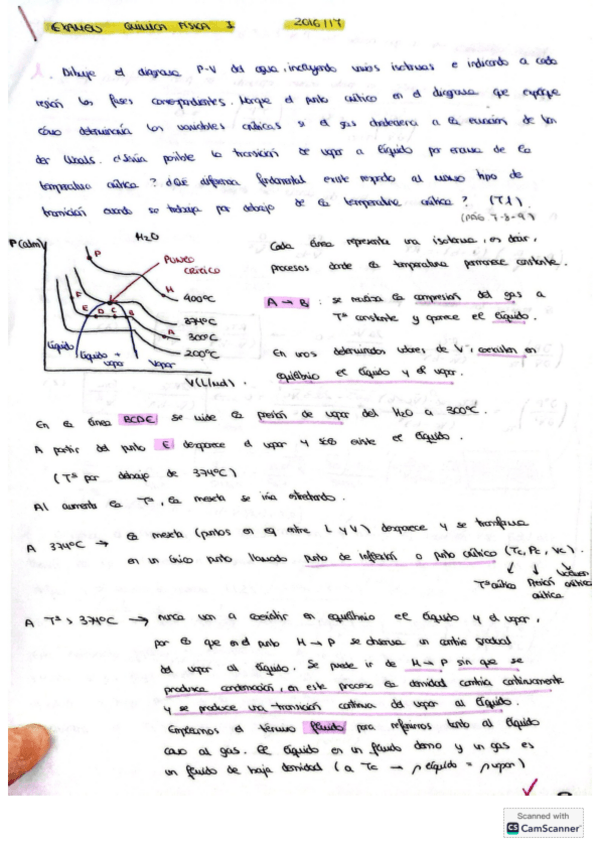 EXAMEN QUÍMICA FÍSICA I 2016/17
1. Dibuje el diagrama P-V del agua, incluyendo varias isotermas e indicando a cada
región las fases correspondientes. Marque el punto crítico en el diagrama que explique
cómo determinaría las variables críticas si el gas obedeciera a la ecuación de Van
der Waals. ¿Sería posible la transición de vapor a líquido por encima de la
temperatura crítica? ¿Qué diferencia fundamental existe respecto al mismo tipo de
transición cuando se trabaja por debajo de la temperatura crítica? (T1)
(pág 7-8-9)
P(atm)
H2O
PUNTO
CRÍTICO
P
H
F
E D C B
A
400ºC
374ºC
300ºC
200ºC
Líquido
Líquido +
vapor
Vapor
V(L/mol).
Cada línea representa una isoterma, es decir,
procesos donde la temperatura permanece constante.
A → B : se realiza la compresión del gas a
Tª constante y aparece el líquido.
En unos determinados valores de V, coexisten en
equilibrio el líquido y el vapor.
En la línea BCDE se mide la presión de vapor del H2O a 300ºC.
A partir del punto E desaparece el vapor y sólo existe el líquido.
(Tª por debajo de 374ºC)
Al aumentar la Tª, la meseta se iría estrechando.
A 374ºC → la meseta (puntos en eq entre L y V) desaparece y se transforma
en un único punto llamado punto de inflexión o punto crítico (Tc, Pc, Vc).
Tª crítica Presión crítica Volumen crítico
A Tª > 374ºC → nunca van a coexistir en equilibrio el líquido y el vapor,
por lo que en el punto H → P se observa un cambio gradual
del vapor al líquido. Se puede ir de H → P sin que se
produzca condensación, en este proceso la densidad cambia continuamente
y se produce una transición continua del vapor al líquido.
Empleamos el término fluido para referirnos tanto al líquido
como al gas. El líquido es un fluido denso y un gas es
un fluido de baja densidad (a Tc → ρ líquido = ρ vapor)
Scanned with
CS CamScanner